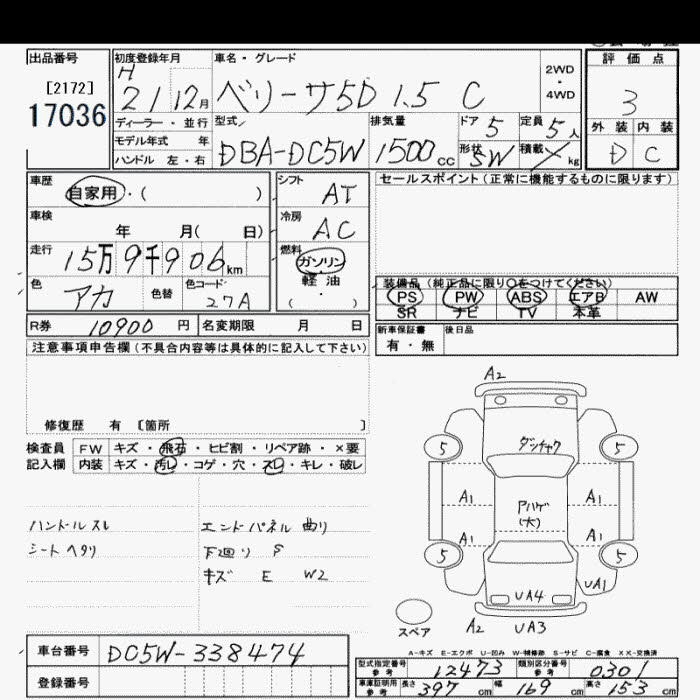 出品番号
[2172]
17036
初度登録年月
H
21 12月
車名・グレード
ベリーサ5D 1.5 C
2WD
・
4WD
評価点
3
外装 内装
D C
ディーラー・並行
モデル年式 年
ハンドル 左・右
型式
DBA-DC5W
排気量
1500cc
ドア 5
形状 SW
定員 5人
積載 kg
車歴
自家用・( )
車検
年 月( 日)
走行
15万9千906km
色
アカ
色替
色コード
27A
シフト
AT
冷房
AC
燃料
ガソリン
軽油
( )
セールスポイント(正常に機能するものに限ります)
装備品(純正品に限り○をつけてください)
PS PW ABS エアB AW
SR ナビ TV 本革
R券 10900円 名変期限 月 日
新車保証書 後日品
有・無
注意事項申告欄(不具合内容等は具体的に記入して下さい)
修復歴 有 〔箇所 〕
検査員
記入欄
FW キズ・飛石・ヒビ割・リペア跡・×要
内装 キズ・汚レ・コゲ・穴・スレ・キレ・破レ
ハンドルスレ
シートヘタリ
エンドパネル曲り
下廻り S
キズ E W2
A2
5 5
A1 A1
アハゲ
(大)
A1 A1
5 5
UA1
UA4
スペア
A2 UA3
A-キズ E-エクボ U-凹み W-補修跡 S-サビ C-腐食 XX-交換済
車台番号 DC5W-338474
登録番号
型式指定番号
参考
12473
類別区分番号
参考
0301
車庫証明用
参考
長さ 397cm 幅 169cm 高さ 153cm